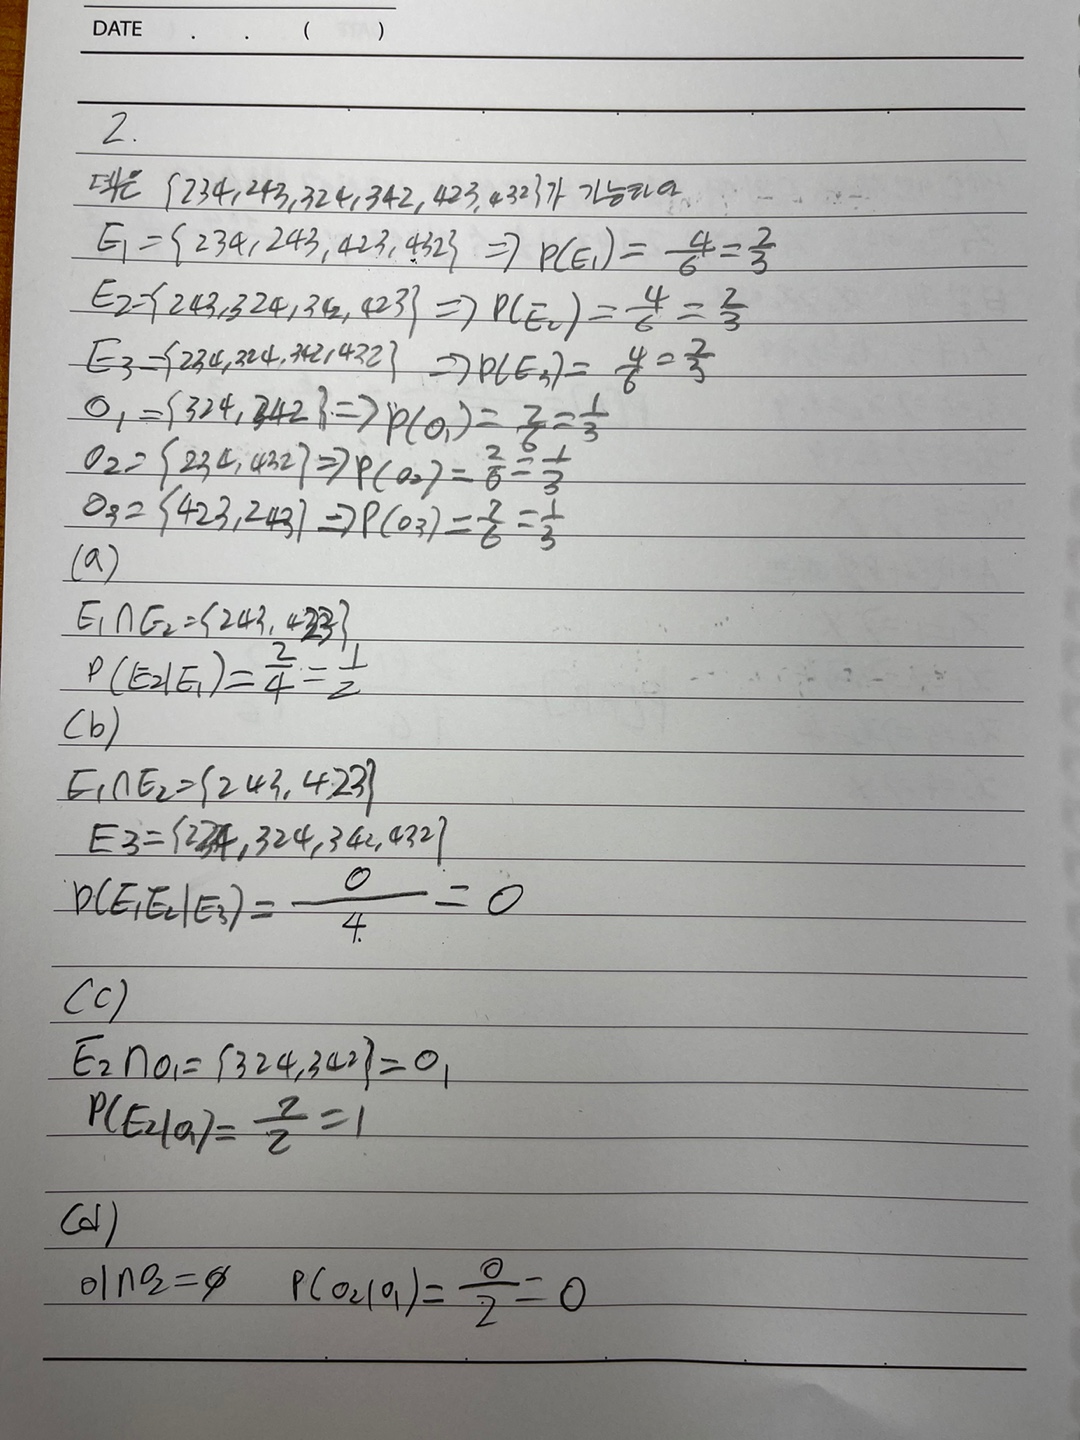 DATE . . ( )
2.
덱은 {234,243,324,342,423,432}가 가능하다
E₁={234,243,423,432} ⇒ P(E₁)= 4/6=2/3
E₂={243,324,342,423} ⇒ P(E₂)= 4/6=2/3
E₃={234,324,342,432} ⇒P(E₃)= 4/6=2/3
O₁={324,342}⇒P(O₁)=2/6=1/3
O₂={234,432}⇒P(O₂)=2/6=1/3
O₃={423,243}⇒P(O₃)=2/6=1/3
(a)
E₁∩E₂={243,423}
P(E₂|E₁)=2/4=1/2
(b)
E₁∩E₂={243,423}
E₃={234,324,342,432}
P(E₁E₂|E₃)=0/4=0
(c)
E₂∩O₁={324,342}=O₁
P(E₂|O₁)=2/2=1
(d)
O₁∩O₂=∅ P(O₂|O₁)=0/2=0